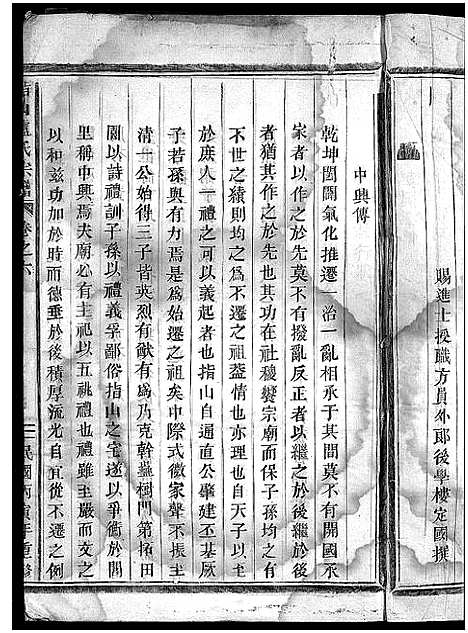 賜進士授職方員外郎後學樓定國撰
中興傳
乾坤闔闢氣化推遷一治一亂相承于其間莫不有開國承
家者以作之於先莫不有撥亂反正者以繼之於後繼於後
者猶其作於先也其功本在社稷饗宗廟而保子孫均之有
不世之積則均之為不遷之情也亦理也自天子以至
於庶人一禮之可以義起者也指山自遁直公肇建丕基厥
子若孫與有力焉是為始遷之祖矣中際式微家聲不振至
清一公始得三子皆英烈有猷有為乃克幹蠱樹門第拓田
園以詩禮訓子孫以禮義孚鄙俗指山之宅遂以爭衡於閭
里稱中興焉夫廟必有主祀以五祧禮也禮雖至嚴而文之
以和茲功加於時而德垂於後積厚流光自宜從不遷之例
氏宗譜 卷之六
民國 寅年重修